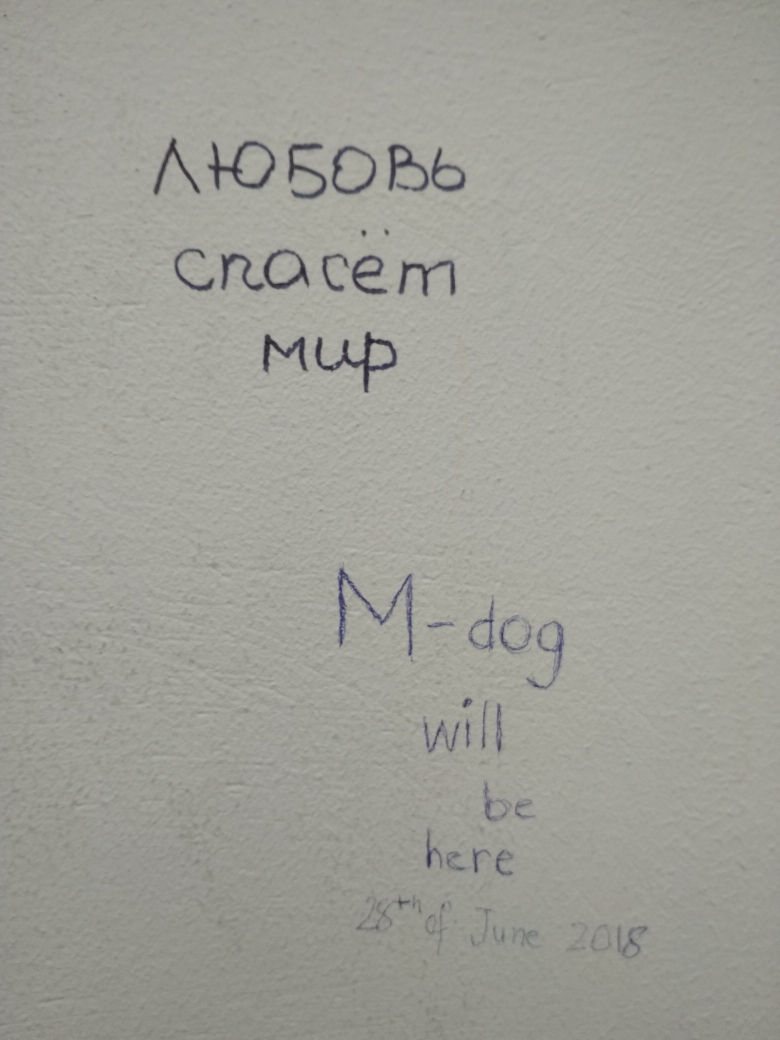 ЛЮБОВЬ
спасём
мир
M-dog
will
be
here
28th of June 2018